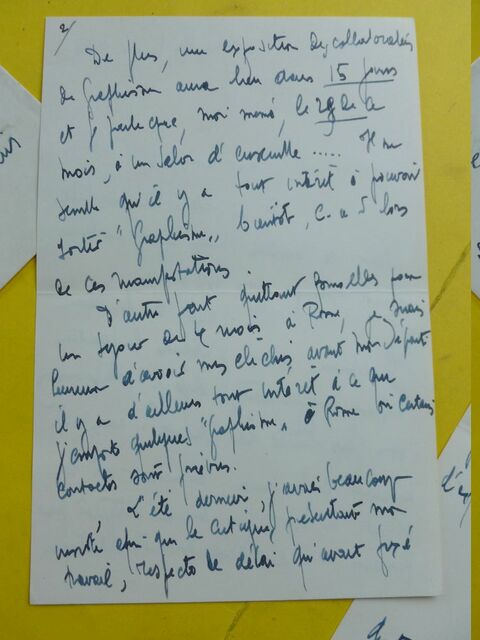 2/
De plus, une exposition des collaborateurs
de Graphisme aura lieu dans 15 jours
et je participe, moi même, le 28 de ce
mois, à un Salon d'ensemble ..... Il me
semble qu'il y a tout intérêt à pouvoir
sortir "Graphisme", bientôt, c. a d lors
de ces manifestations.
D'autre part quittant Bruxelles pour
un séjour de 4 mois à Rome, je serais
heureux d'avoir mes clichés avant mon départ
il y a d'ailleurs tout intérêt à ce que
j'emporte quelques "Graphisme" à Rome où certains
contacts sont prévus.
L'été dernier, j'avais beaucoup
insisté afin que la critique, présentant mon
travail, respecte le délai qu'avait fixé